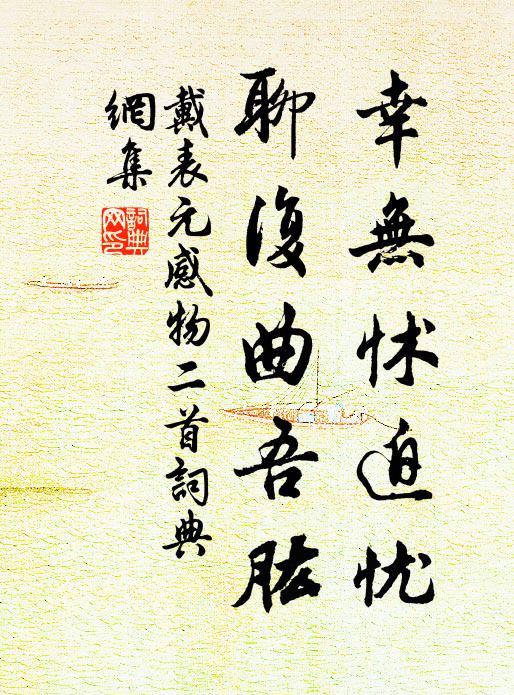 幸無怵迫忧
聊復曲吾肱
戴表元感物二首詞典
網集
詞典
网印